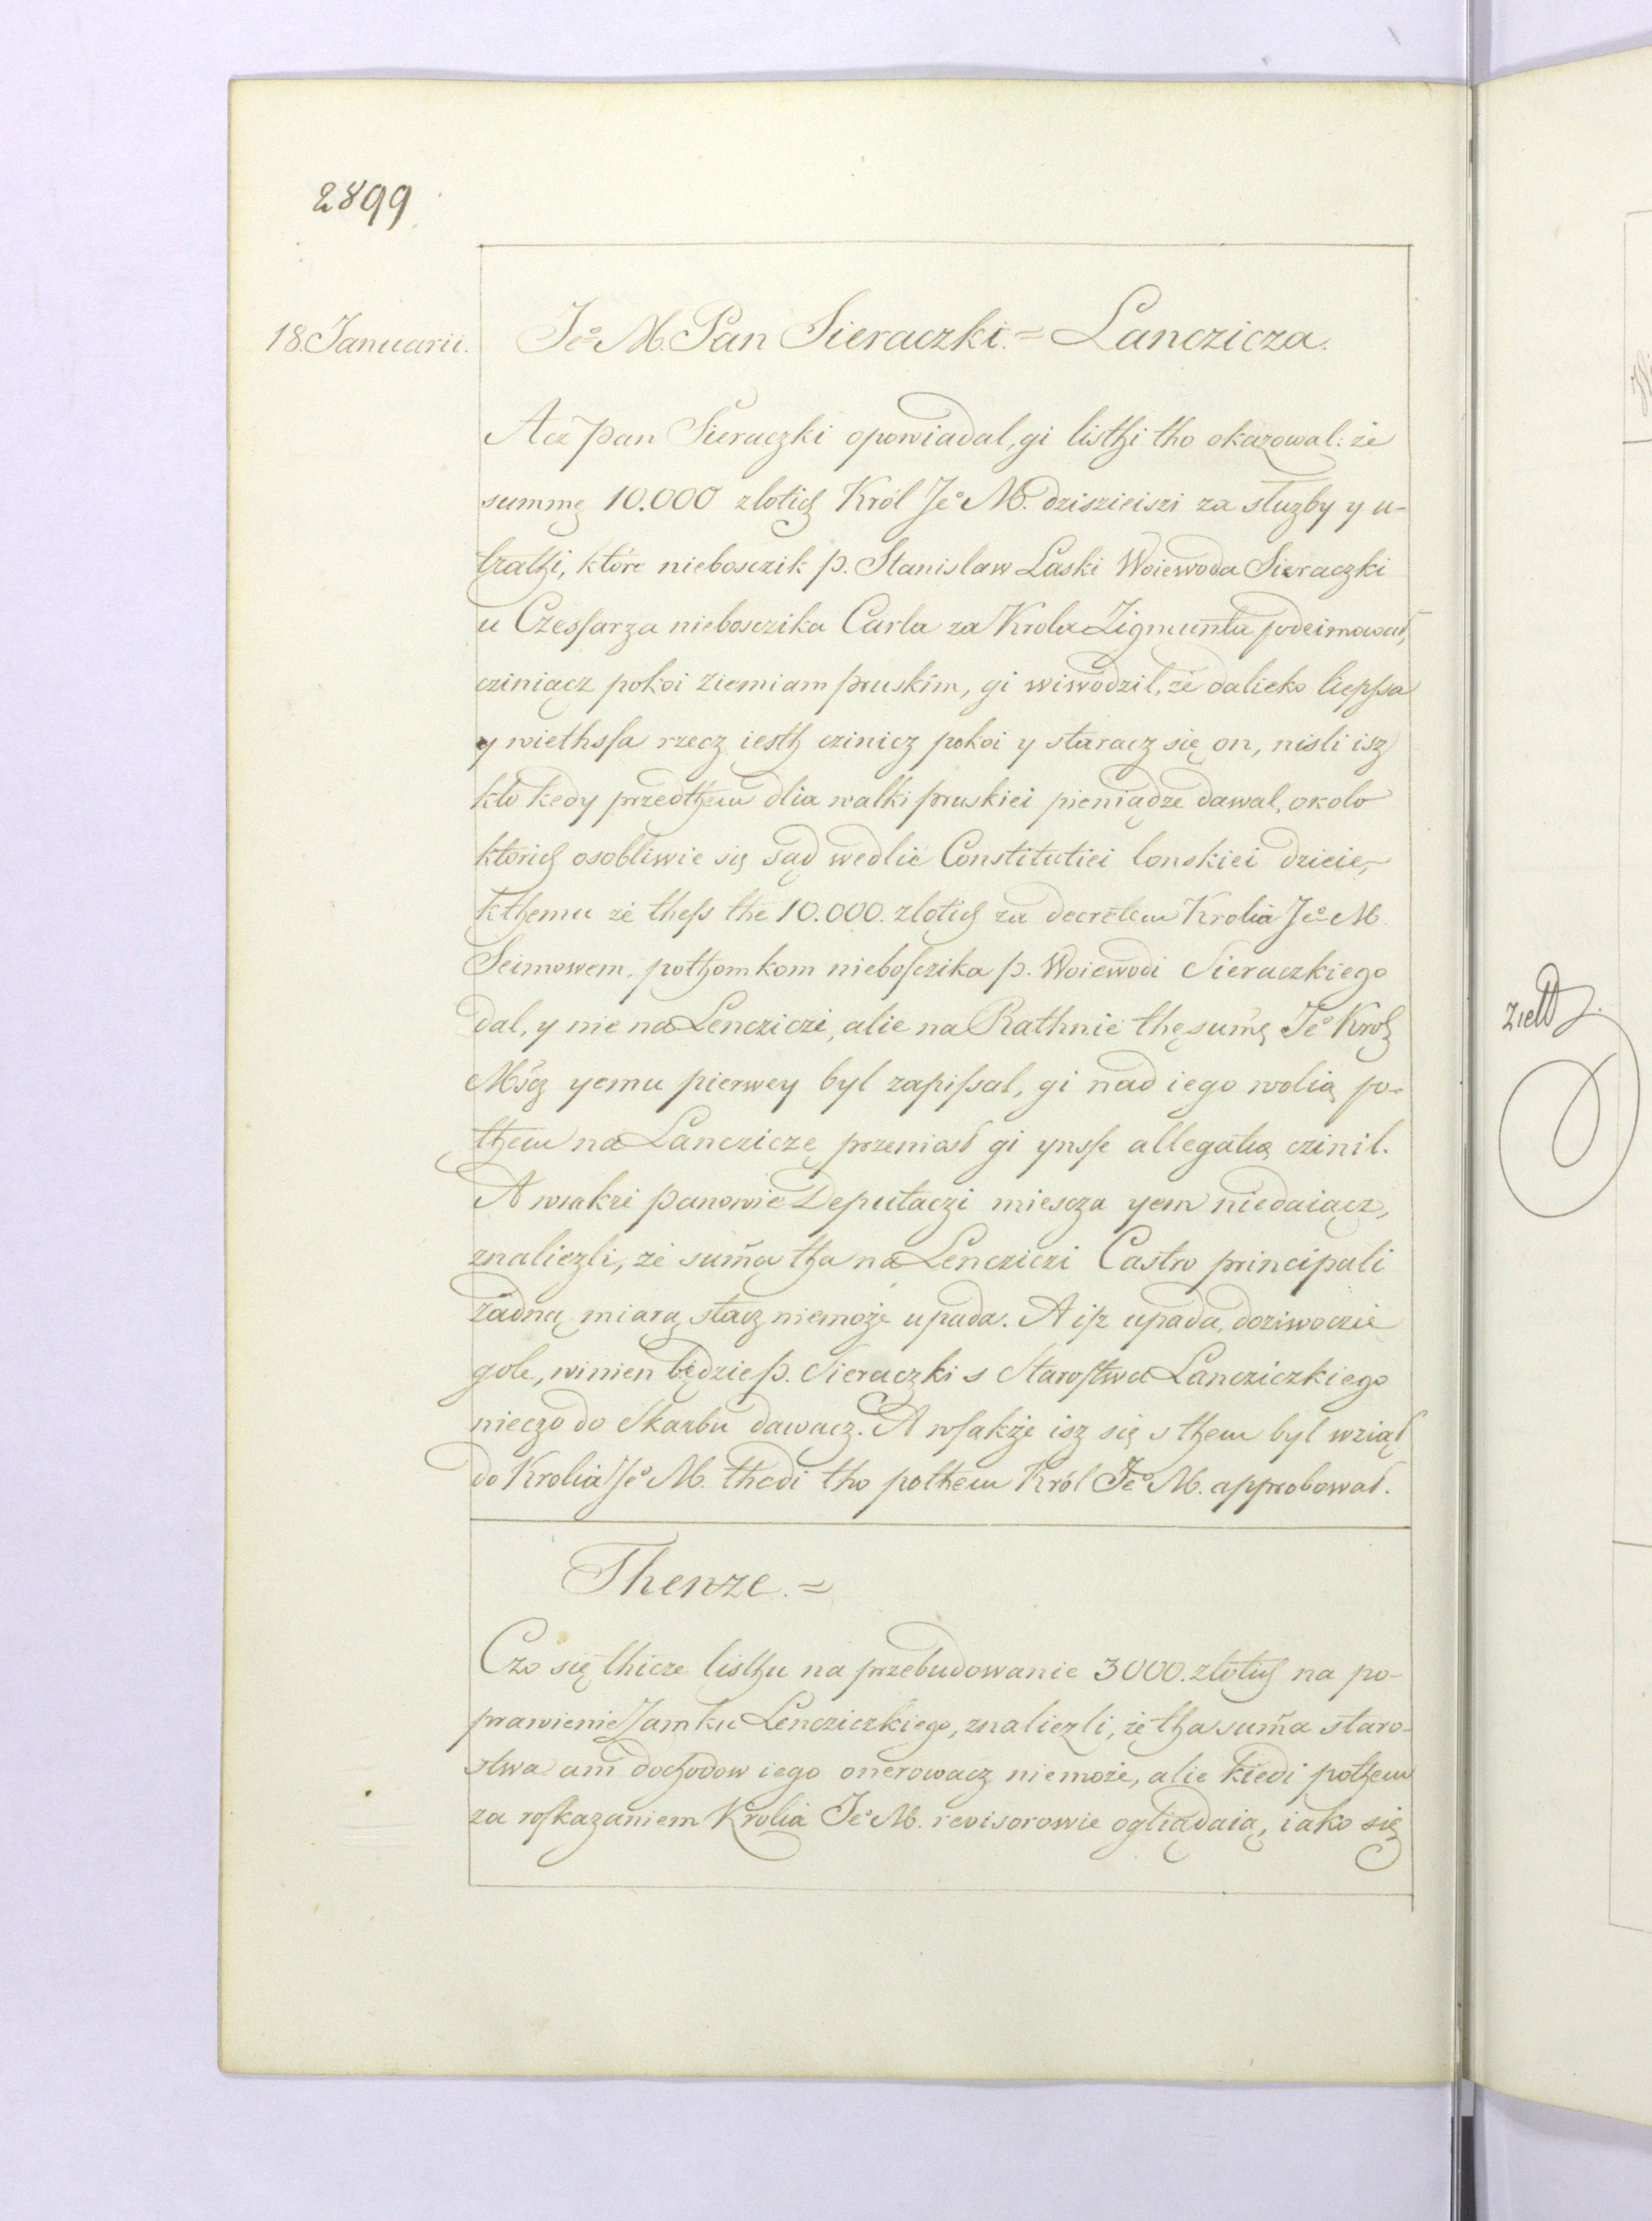 2899
18. Januarii. Jeº M. Pan Sieraczki. = Lanczicza.
Acz pan Sieraczki opowiadal, gi listhi tho okazowal: że
summę 10.000 zlotich Król Jeº M. dziszieiszi za służby y u-
trathi, które nieboszczik p. Stanislaw Laski Woiewoda Sieraczki
u Czessarza nieboszczika Carla za Krola Zigmunta podeimowal,
cziniącz pokoi ziemiam pruskim, gi wiwodzil, że dalieko liepsza
y wiethssa rzecz iesth czinicz pokoi y staracz się on, nisli isz
kto kedy przedthem dlia walki pruskiei pieniądze dawal, okolo
ktorich osobliwie się sąd wedlie Constitutiei lonskiei dzieie,
kthemu że thess the 10.000. zlotich za decretem Krolia Jeº M.
Seimowem, pothomkom nieboszczika p. Woiewodi Sieraczkiego
dal, y nie na Lencziczi, alie na Rathnie thę sumę Jeº Krol
Mscz yemu pierwey byl zapissal, gi nad iego wolią po-
them na Lancziczę przeniosł gi ynsse allegatią czinil.
A wsakże panowie Deputaczi miescza yem niedaiącz,
znaliezli, że suma tha na Lencziczi Castro principali
żadną miarą stacz niemoże upada. A isz upada, doziwoczie
gole, winien będzie p. Sieraczki s Starostwa Lancziczkiego
nieczo do Skarbu dawacz. A wsakże isz się s them byl wziął
do Krolia Jeº M. thedi tho pothem Król Jeº M. approbował.
Thenze. =
Czo się thicze listhu na przebudowanie 3000. zlotich na po-
prawienie Zamku Lencziczkiego, znaliezli, że tha suma staro-
stwa ani dochodow iego onerowacz niemoże, alie kiedi pothem
za roskazaniem Krolia Jeº M. revisorowie ogliądaią, iako się